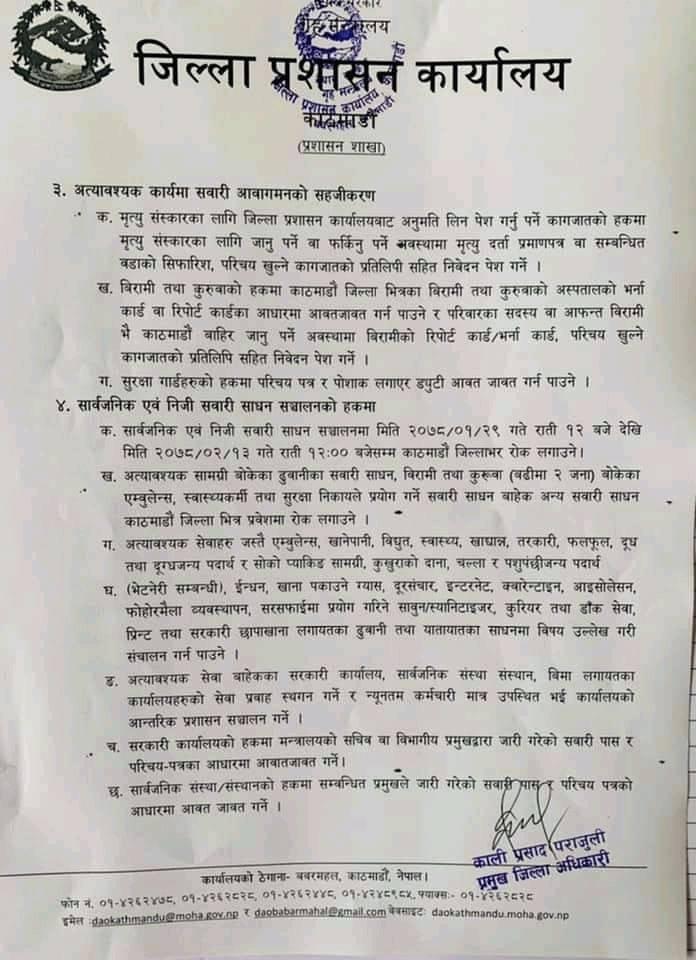 सरकार
गृह मन्त्रालय
जिल्ला प्रशासन कार्यालय
काठमाडौं
(प्रशासन शाखा)
३. अत्यावश्यक कार्यमा सवारी आवागमनको सहजीकरण
क. मृत्यु संस्कारका लागि जिल्ला प्रशासन कार्यालयबाट अनुमति लिन पेश गर्नु पर्ने कागजातको हकमा
मृत्यु संस्कारका लागि जानु पर्ने वा फर्किनु पर्ने अवस्थामा मृत्यु दर्ता प्रमाणपत्र वा सम्बन्धित
वडाको सिफारिश, परिचय खुल्ने कागजातको प्रतिलिपी सहित निवेदन पेश गर्ने ।
ख. बिरामी तथा कुरुवाको हकमा काठमाडौं जिल्ला भित्रका बिरामी तथा कुरुवाको अस्पतालको भर्ना
कार्ड वा रिपोर्ट कार्डका आधारमा आवतजावत गर्न पाउने र परिवारका सदस्य वा आफन्त बिरामी
भै काठमाडौं बाहिर जानु पर्ने अवस्थामा बिरामीको रिपोर्ट कार्ड/भर्ना कार्ड, परिचय खुल्ने
कागजातको प्रतिलिपि सहित निवेदन पेश गर्ने ।
ग. सुरक्षा गार्डहरुको हकमा परिचय पत्र र पोशाक लगाएर ड्युटी आवत जावत गर्न पाउने ।
४. सार्वजनिक एवं निजी सवारी साधन सञ्चालनको हकमा
क. सार्वजनिक एवं निजी सवारी साधन सञ्चालनमा मिति २०७८/०१/२९ गते राती १२ बजे देखि
मिति २०७८/०२/१३ गते राती १२:०० बजेसम्म काठमाडौं जिल्लाभर रोक लगाउने।
ख. अत्यावश्यक सामग्री बोकेका ढुवानीका सवारी साधन, विरामी तथा कुरूवा (बढीमा २ जना) बोकेका
एम्वुलेन्स, स्वास्थ्यकर्मी तथा सुरक्षा निकायले प्रयोग गर्ने सवारी साधन बाहेक अन्य सवारी साधन
काठमाडौं जिल्ला भित्र प्रवेशमा रोक लगाउने ।
ग. अत्यावश्यक सेवाहरु जस्तै एम्वुलेन्स, खानेपानी, विधुत, स्वास्थ्य, खाद्यान्न, तरकारी, फलफूल, दूध
तथा दूग्धजन्य पदार्थ र सोको प्याकिङ सामग्री, कुखुराको दाना, चल्ला र पशुपंछीजन्य पदार्थ
घ. (भेटनेरी सम्बन्धी), ईन्धन, खाना पकाउने ग्यास, दूरसंचार, इन्टरनेट, क्वारेन्टाइन, आइसोलेसन,
फोहोरमैला व्यवस्थापन, सरसफाईमा प्रयोग गरिने सावुन/स्यानिटाइजर, कुरियर तथा डाँक सेवा,
प्रिन्ट तथा सरकारी छापाखाना लगायतका ढुवानी तथा यातायातका साधनमा विषय उल्लेख गरी
संचालन गर्न पाउने ।
ङ. अत्यावश्यक सेवा बाहेकका सरकारी कार्यालय, सार्वजनिक संस्था संस्थान, बिमा लगायतका
कार्यालयहरुको सेवा प्रवाह स्थगन गर्ने र न्यूनतम कर्मचारी मात्र उपस्थित भई कार्यालयको
आन्तरिक प्रशासन सञ्चालन गर्ने ।
च. सरकारी कार्यालयको हकमा मन्त्रालयको सचिव वा विभागीय प्रमुखद्वारा जारी गरेको सवारी पास र
परिचय-पत्रका आधारमा आवातजावत गर्ने।
छ. सार्वजनिक संस्था/संस्थानको हकमा सम्बन्धित प्रमुखले जारी गरेको सवारी पास र परिचय पत्रको
आधारमा आवत जावत गर्ने ।
काली प्रसाद पराजुली
प्रमुख जिल्ला अधिकारी
कार्यालयको ठेगाना- बबरमहल, काठमाडौं, नेपाल।
फोन नं. ०१-४२६२४७८, ०१-४२६२८२८, ०१-४२६२४४८, ०१-४२४८९८५, फ्याक्स:- ०१-४२६२८२८
इमेल :daokathmandu@moha.gov.np र daobabarmahal@gmail.com वेबसाइट: daokathmandu.moha.gov.np